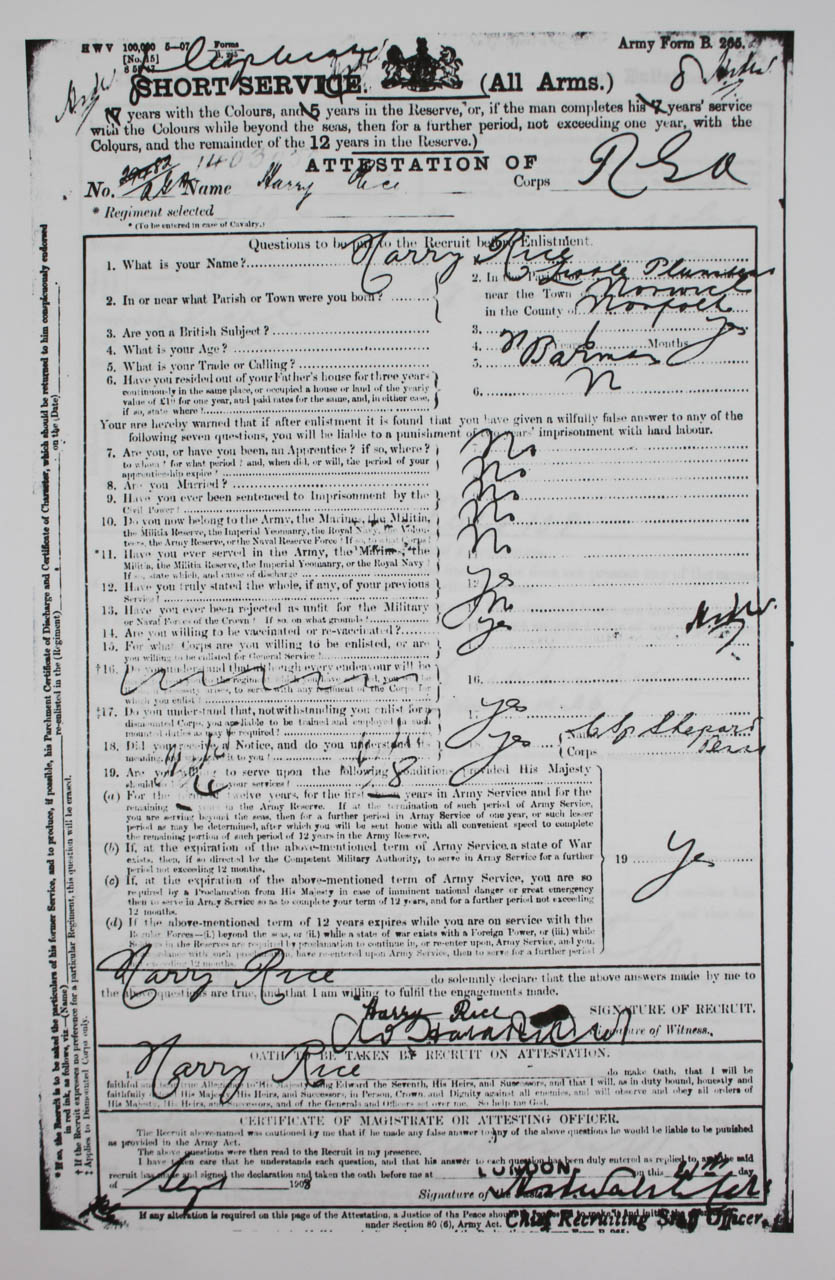 H W V 100,000 5—07 Forms
Army Form B. 265.
SHORT SERVICE. (All Arms.)
years with the Colours, and 5 years in the Reserve, or, if the man completes his 7 years' service
with the Colours while beyond the seas, then for a further period, not exceeding one year, with the
Colours, and the remainder of the 12 years in the Reserve.)
ATTESTATION OF
No. Name Harry Rice Corps RGA
* Regiment selected
* (To be entered in case of Cavalry.)
Questions to be put to the Recruit before Enlistment.
1. What is your Name? Harry Rice
2. In or near what Parish or Town were you born?
2. In the Parish of Little Plumstead
near the Town Norwich
in the County of Norfolk
3. Are you a British Subject? 3. Yes
4. What is your Age? 4. Years Months
5. What is your Trade or Calling? 5. Barman
6. Have you resided out of your Father's house for three years
continuously in the same place, or occupied a house or land of the yearly
value of £10 for one year, and paid rates for the same, and, in either case,
if so, state where? 6.
You are hereby warned that if after enlistment it is found that you have given a wilfully false answer to any of the
following seven questions, you will be liable to a punishment of years' imprisonment with hard labour.
7. Are you, or have you been, an Apprentice? if so, where?
to whom? for what period? and, when did, or will, the period of your
apprenticeship expire? No
8. Are you Married? No
9. Have you ever been sentenced to Imprisonment by the
Civil Power? No
10. Do you now belong to the Army, the Marines, the Militia,
the Militia Reserve, the Imperial Yeomanry, the Royal Navy, the Volunteers,
the Army Reserve, or the Naval Reserve Force? If so, to what Corps? No
*11. Have you ever served in the Army, the Marines, the
Militia, the Militia Reserve, the Imperial Yeomanry, or the Royal Navy?
If so, state which, and cause of discharge No
12. Have you truly stated the whole, if any, of your previous
Service? 12 Yes
13. Have you ever been rejected as unfit for the Military
or Naval Forces of the Crown? If so, on what grounds? No
14. Are you willing to be vaccinated or re-vaccinated? Yes
15. For what Corps are you willing to be enlisted, or are
you willing to be enlisted for General Service?
†16. Do you understand that although every endeavour will be
16.
‡17. Do you understand that, notwithstanding you enlist for a
dismounted Corps, you are liable to be trained and employed in such
mounted duties as may be required? Yes
18. Did you receive a Notice, and do you understand its
meaning, it to you? Yes Corps
19. Are you willing to serve upon the following conditions provided His Majesty
should your services?
(a) For the term of twelve years, for the first 8 years in Army Service and for the
remaining 4 years in the Army Reserve. If at the termination of such period of Army Service,
you are serving beyond the seas, then for a further period in Army Service of one year, or such lesser
period as may be determined, after which you will be sent home with all convenient speed to complete
the remaining portion of such period of 12 years in the Army Reserve.
(b) If, at the expiration of the above-mentioned term of Army Service, a state of War
exists, then, if so directed by the Competent Military Authority, to serve in Army Service for a further
period not exceeding 12 months. 19 Yes
(c) If, at the expiration of the above-mentioned term of Army Service, you are so
required by a Proclamation from His Majesty in case of imminent national danger or great emergency
then to serve in Army Service so as to complete your term of 12 years, and for a further period not exceeding
12 months.
(d) If the above-mentioned term of 12 years expires while you are on service with the
Regular Forces—(i.) beyond the seas, or (ii.) while a state of war exists with a Foreign Power, or (iii.) while
Soldiers in the Reserves are required by proclamation to continue in, or re-enter upon, Army Service, and you,
in accordance with such proclamation, have re-entered upon Army Service, then to serve for a further period
not exceeding 12 months.
Harry Rice do solemnly declare that the above answers made by me to
the above questions are true, and that I am willing to fulfil the engagements made.
Harry Rice SIGNATURE OF RECRUIT.
Signature of Witness.
OATH TO BE TAKEN BY RECRUIT ON ATTESTATION.
I, Harry Rice do make Oath, that I will be
faithful and bear true Allegiance to His Majesty King Edward the Seventh, His Heirs, and Successors, and that I will, as in duty bound, honestly and
faithfully defend His Majesty, His Heirs, and Successors, in Person, Crown, and Dignity against all enemies, and will observe and obey all orders of
His Majesty, His Heirs, and Successors, and of the Generals and Officers set over me. So help me God.
CERTIFICATE OF MAGISTRATE OR ATTESTING OFFICER.
The Recruit above named was cautioned by me that if he made any false answer to any of the above questions he would be liable to be punished
as provided in the Army Act.
The above questions were then read to the Recruit in my presence.
I have taken care that he understands each question, and that his answer to each question has been duly entered as replied to, and the said
recruit has made and signed the declaration and taken the oath before me at LONDON. on this day
of Sept 1908
Signature of the
If any alteration is required on this page of the Attestation, a Justice of the Peace should be requested to make it and initial the
under Section 80 (6), Army Act. Chief Recruiting Staff Officer.
* If so, the Recruit is to be asked the particulars of his former Service, and to produce, if possible, his Parchment Certificate of Discharge and Certificate of Character, which should be returned to him conspicuously endorsed
in red ink, as follows, viz.—(Name) re-enlisted in the (Regiment) on the (Date)
† If the Recruit expresses no preference for a particular Regiment, this question will be erased.
‡ Applies to Dismounted Corps only.